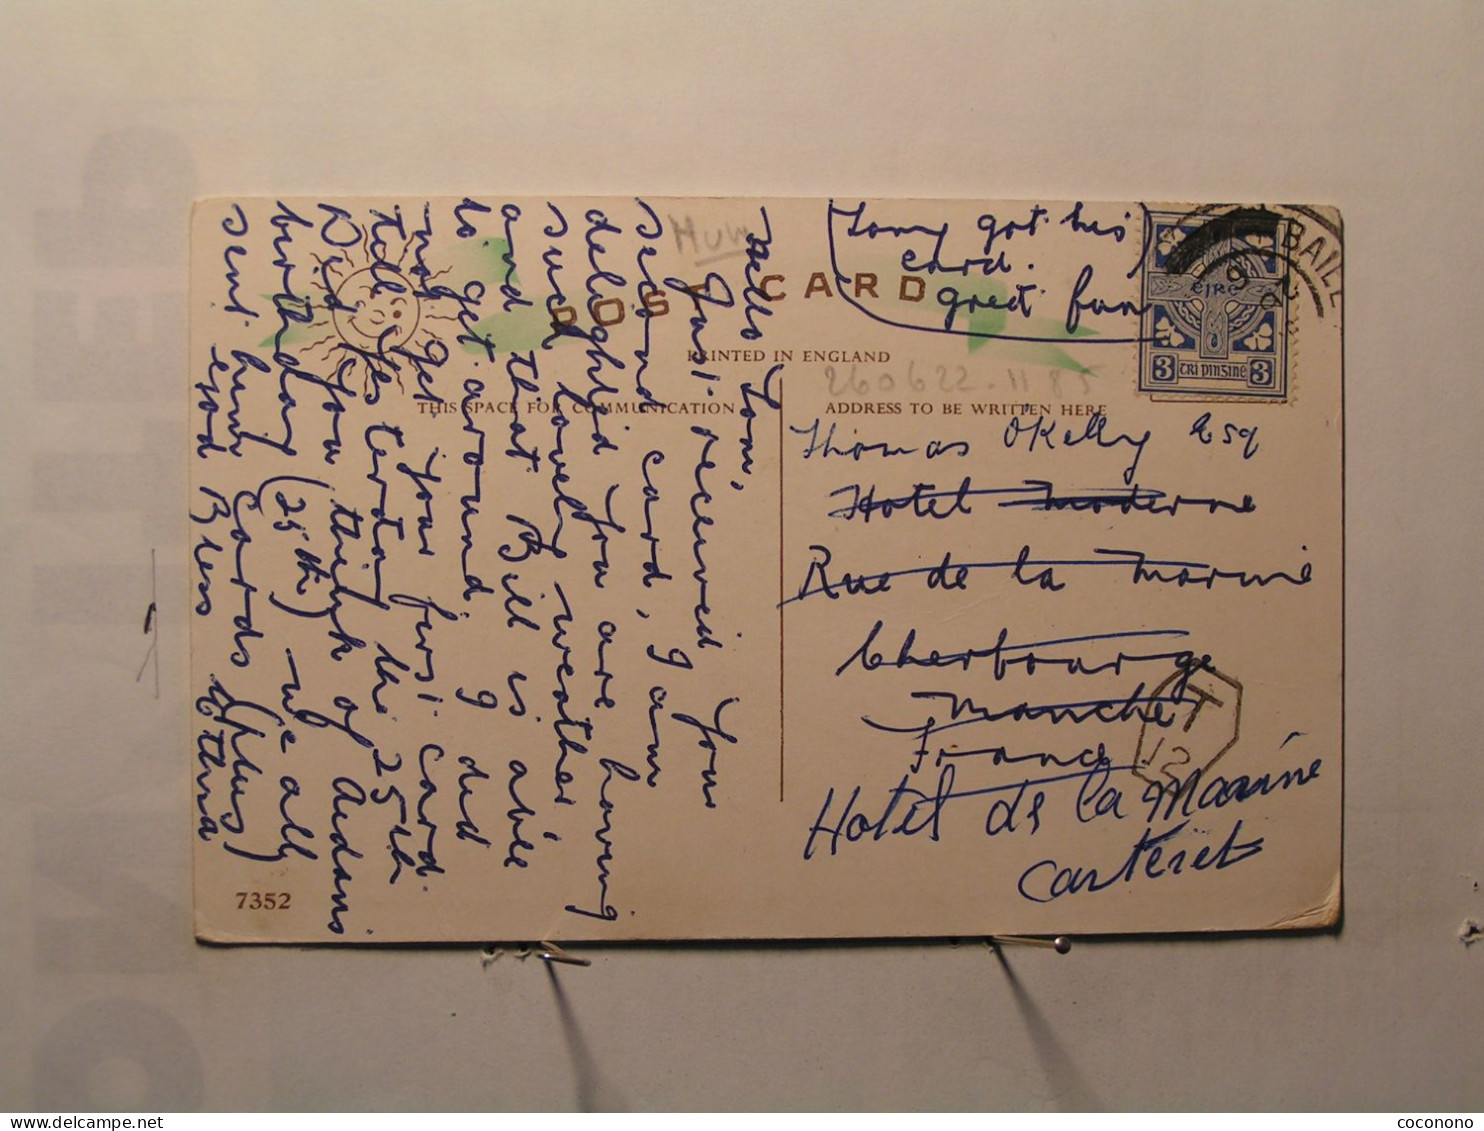 Hello Tom,
Just received your
second card, I am
delightjd you are having
such lovely weather,
and that Bill is able
to get around, I did
not get your first card
till yesterday the 25th
Did you think of Aidans
birthday (25th) - we all
sent him cards (plus)
God Bless Ethna
Tony got his
card.
great fun
POST CARD
PRINTED IN ENGLAND
THIS SPACE FOR COMMUNICATION
ADDRESS TO BE WRITTEN HERE
260622-1185
BAILE
EIRE
3 TRI PINGINE 3
Thomas O'Kelly Esq
Hotel Moderne
Rue de la Marine
Cherbourge
Manche
France
T
12
Hotel de la Marine
Carteret
7352
coconono